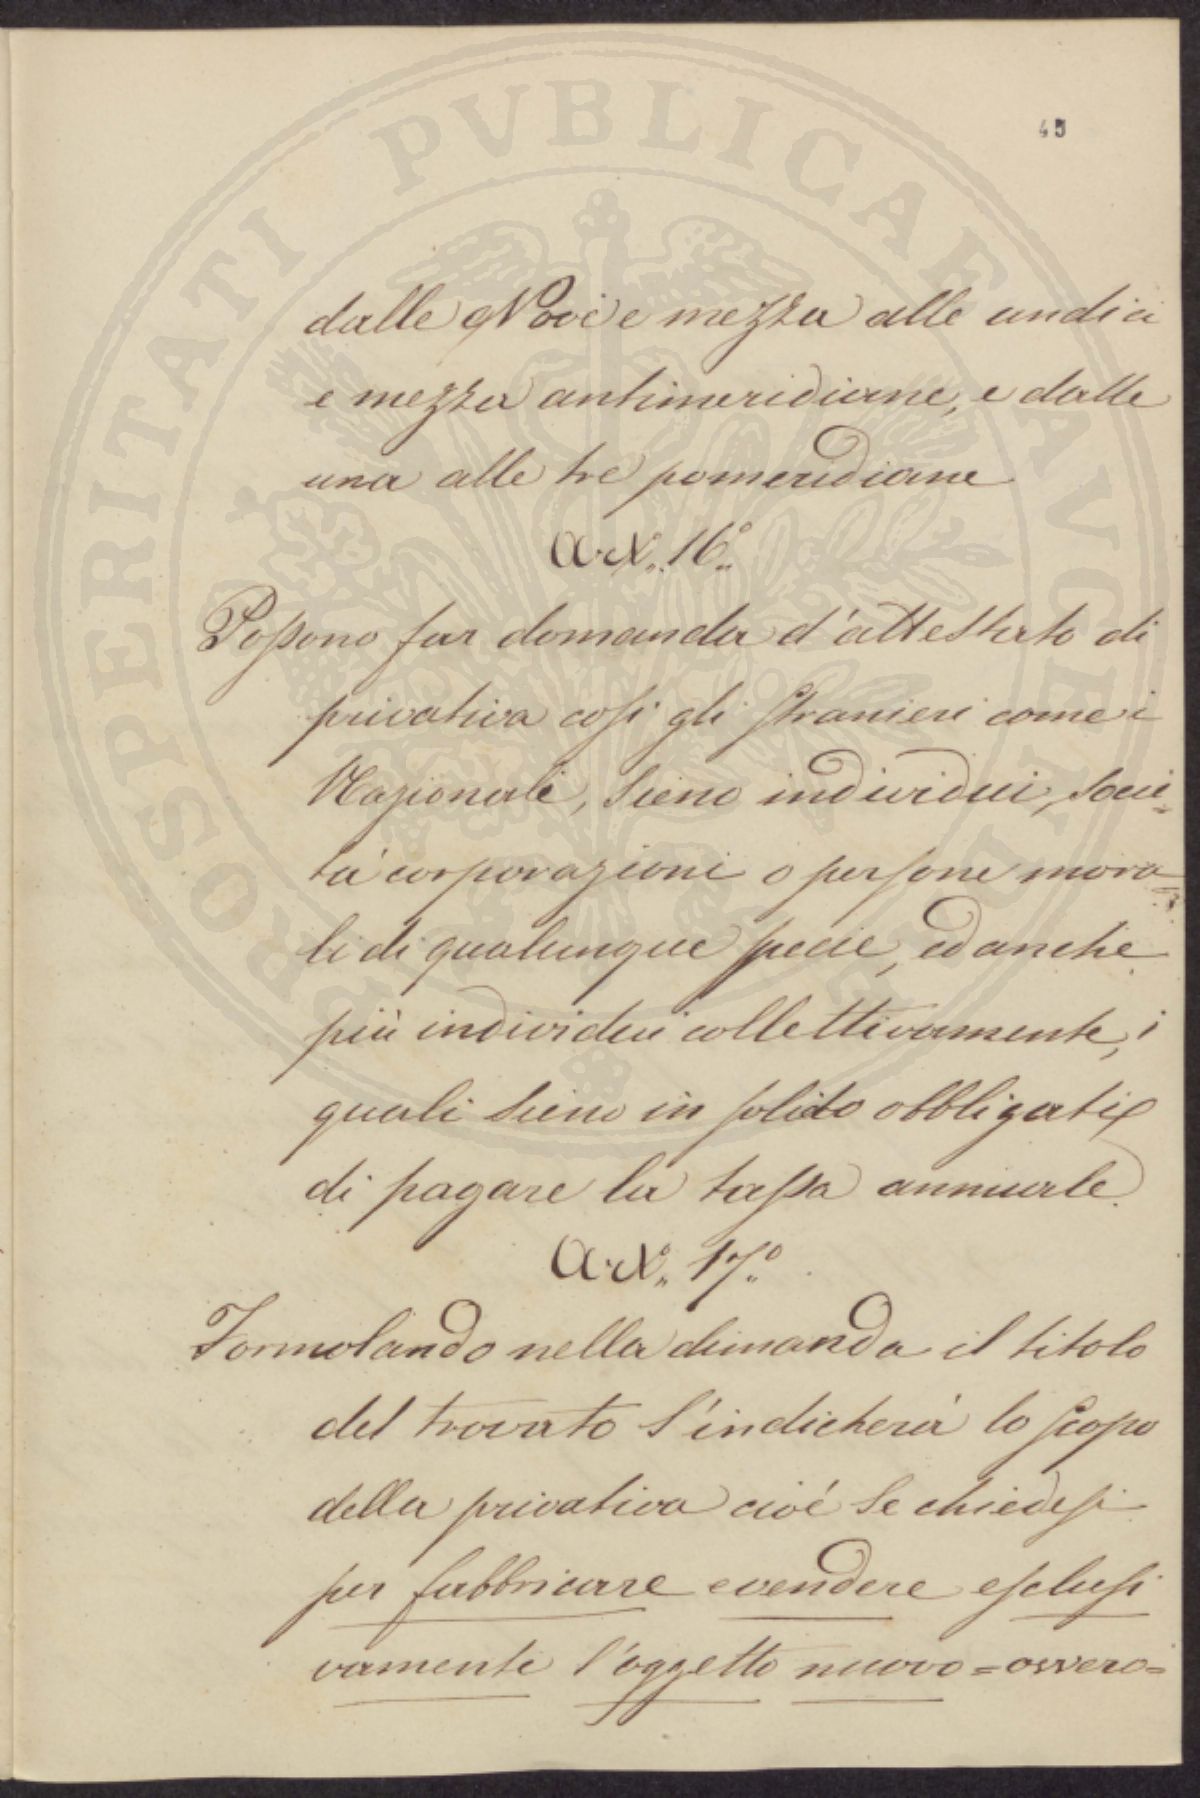 PROSPERITATI PVBLICAE AVGENDAE
45
dalle Nove e mezza alle undici
e mezza antimeridiane, e dalle
una alle tre pomeridiane
Art.° 16.°
Possono far domanda d'attestato di
privativa così gli stranieri come i
Nazionali, sieno individui, socie=
tà corporazioni o persone mora=
li di qualunque specie, ed anche
più individui collettivamente, i
quali sieno in solido obbligati
di pagare la tassa annuale.
Art.° 17.°
Formolando nella dimanda il titolo
del trovato s'indicherà lo scopo
della privativa cioé se chiedesi
per fabbricare e vendere esclusi
vamente l'oggetto nuovo = ovvero =